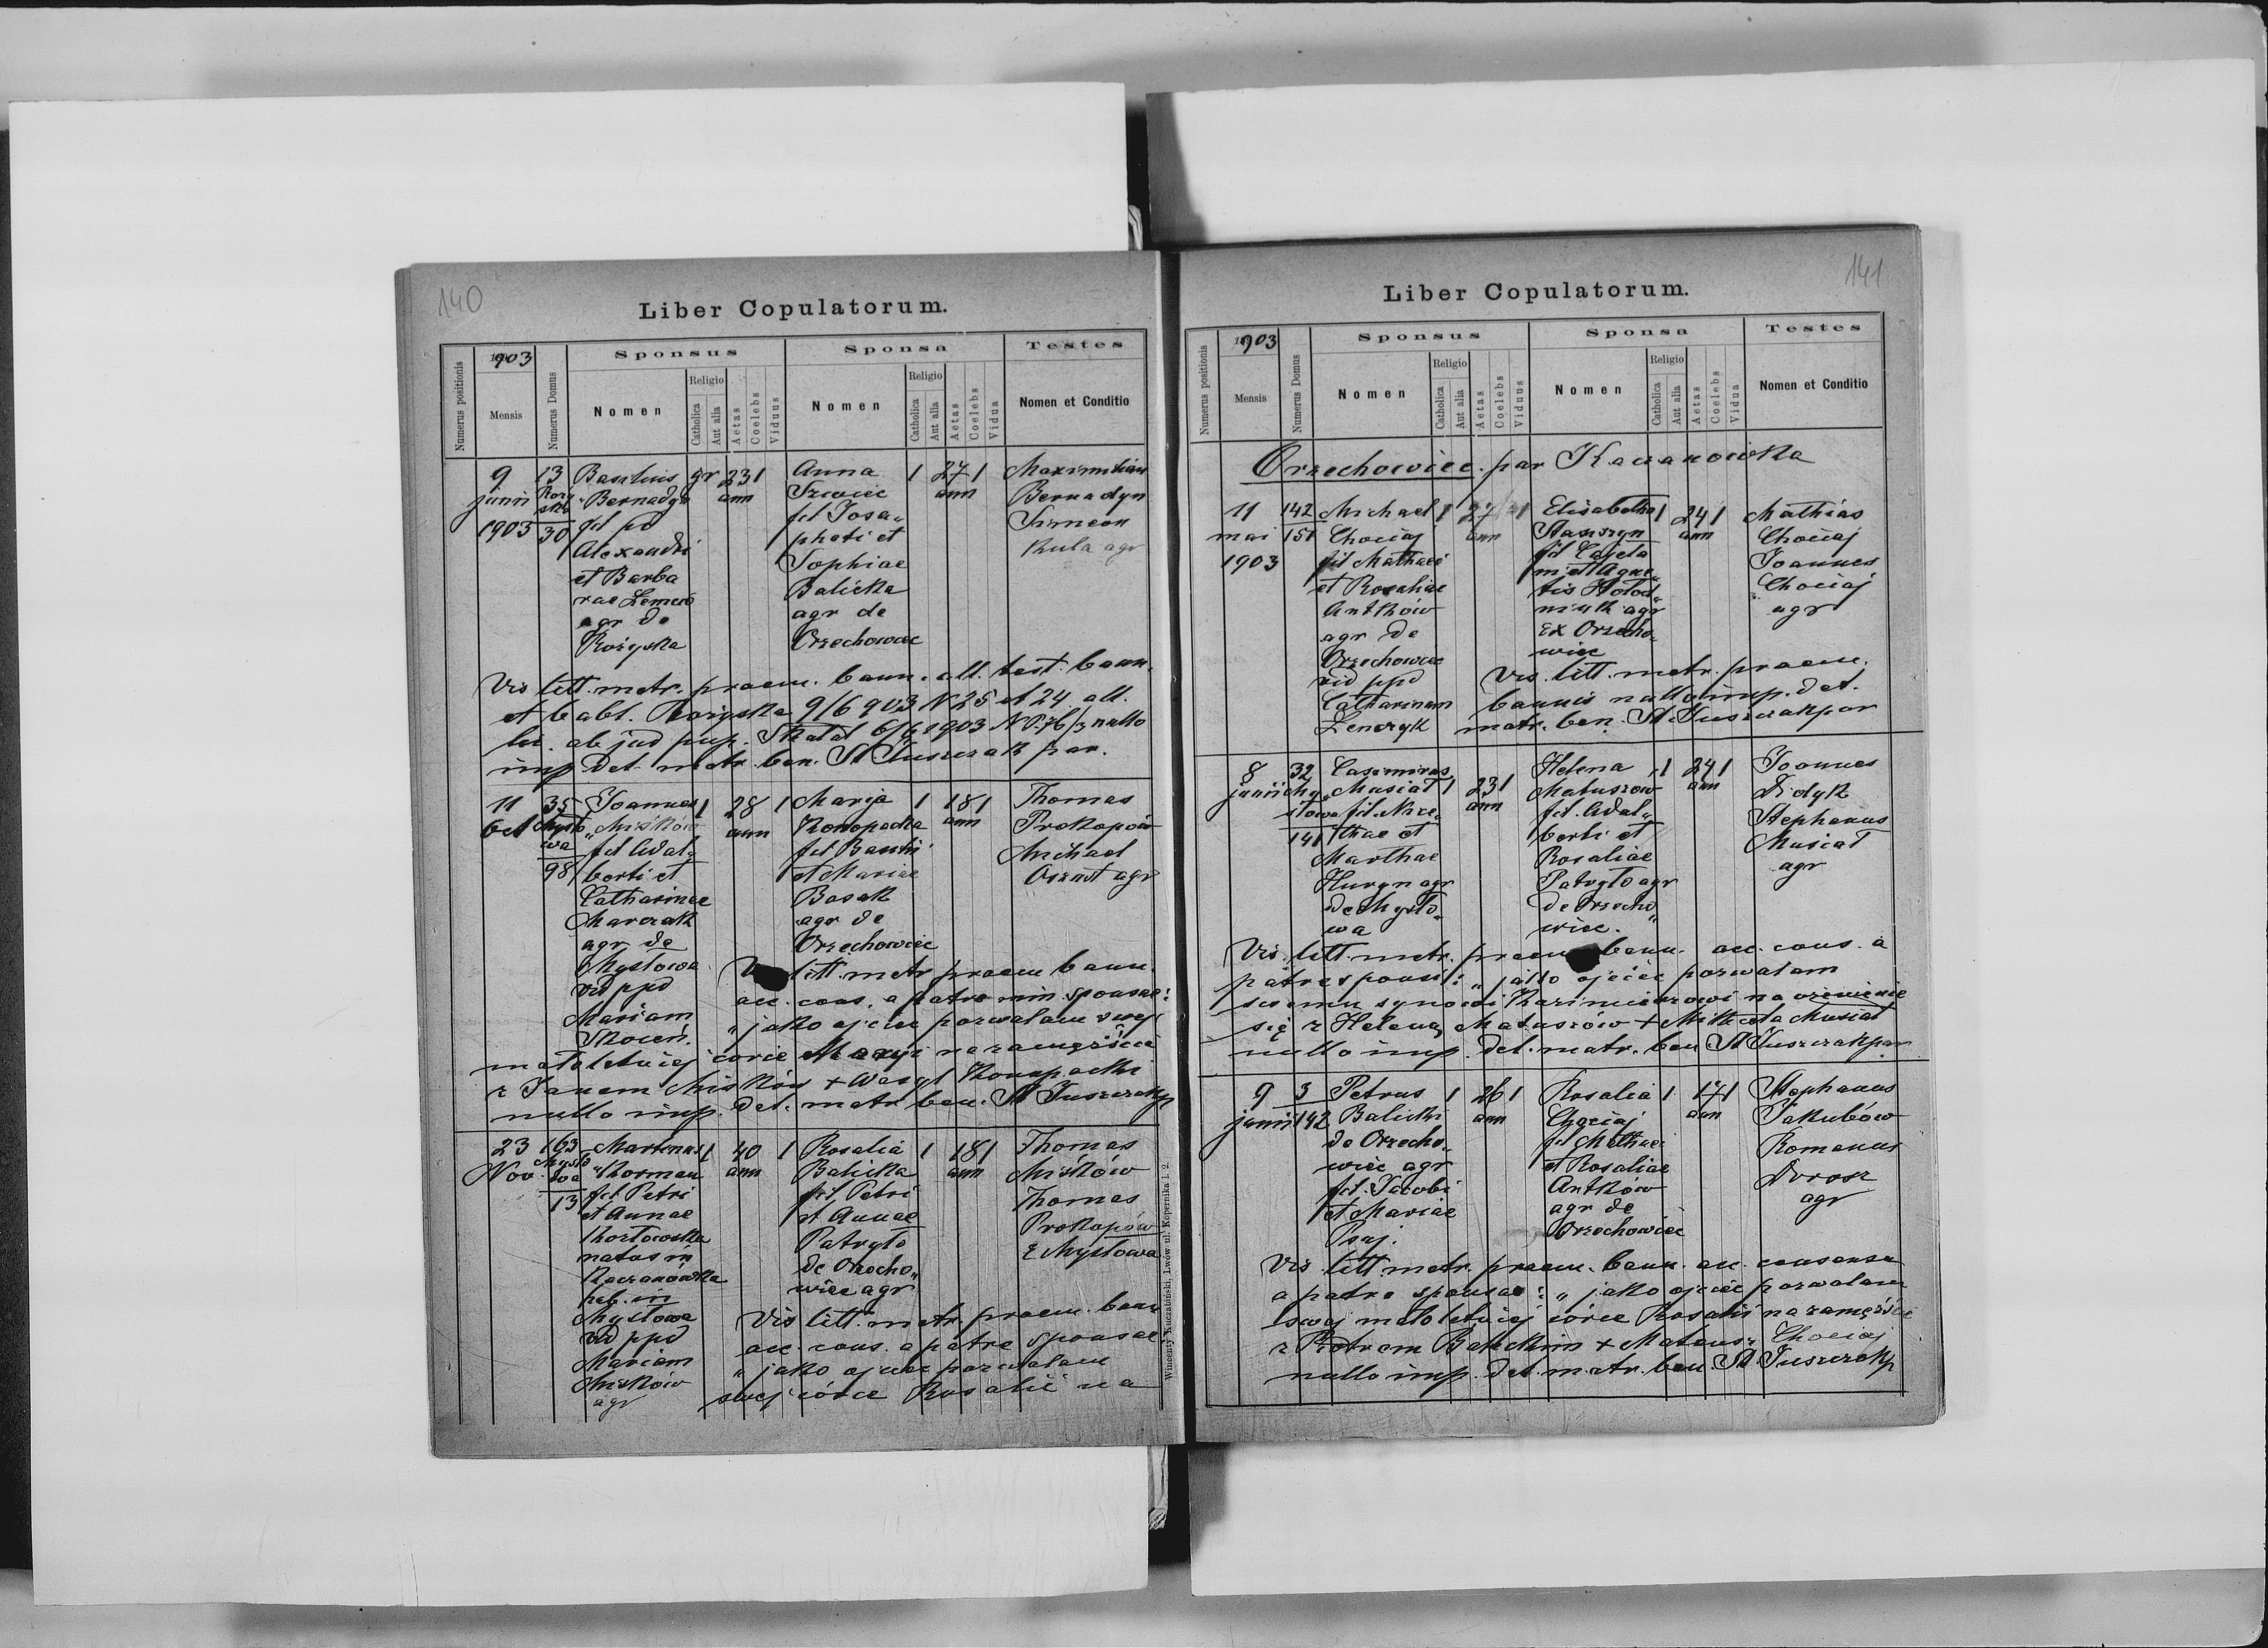 140
Liber Copulatorum.
Numerus positionis
1903
Mensis
Numerus Domus
Sponsus
Nomen
Religio
Catholica
Aut alia
Aetas
Coelebs
Viduus
Sponsa
Nomen
Religio
Catholica
Aut alia
Aetas
Coelebs
Vidua
Testes
Nomen et Conditio
9
junii
1903
13
30
Basilius
Bernadyn
fil pd
Alexandri
et Barba
rae
agr de
Rożyska
gr
23 1
ann
Anna
Szwiec
fil Josa„
phati et
Sophiae
Balicka
agr de
Orzechowiec
1
27 1
ann
Maximilian
Bernadyn
Simeon
Kula agr
Vis litt. metr. praem. bann. all. test. bann.
et babt. Rożyska 9/6 903 N 25 et 24 all.
lic. ab jud pup. Skałat 6/6 1903 nullo
imp det. metr. ben. St Juszczak par.
11
Oct
35
Mysło
wa
98
Joannes
Miśków
fil Adal„
berti et
Catharinae
Marczak
agr de
Mysłowa
vid ppd
Mariam
1
28 1
ann
Marja
Konopacka
fil Basilii
et Mariae
Basak
agr de
Orzechowiec
1
18 1
ann
Thomas
Prokopów
Michael
agr
litt. metr praem bann.
acc. cons. a patre min. sponsae:
„jako ojciec pozwalam swej
małoletniej córce Maryi na zamęście
z Janem Miśków + Wasyl Konopacki
nullo imp. det. matr ben. St Juszczak p
23
Nov.
163
Mysło
wa
13
Martinus
Korman
fil Petri
et Annae
Kozłowska
natus in
Kaczanówka
hab. in
Mysłowa
vid ppd
Mariam
Miśków
agr
1
40 1
ann
Rosalia
Balicka
fil. Petri
et Annae
Patryło
de Orzecho„
wiec agr
1
18 1
ann
Thomas
Miśków
Thomas
Prokopów
z Mysłowa
Vis litt. metr. praem. bann
acc. cons. a patre sponsae
„jako ojciec pozwalam
swej córce Rosalii na
Wincenty Kuczabiński, Lwów ul. Kopernika l. 2.
141
Liber Copulatorum.
Numerus positionis
1903
Mensis
Numerus Domus
Sponsus
Nomen
Religio
Catholica
Aut alia
Aetas
Coelebs
Viduus
Sponsa
Nomen
Religio
Catholica
Aut alia
Aetas
Coelebs
Vidua
Testes
Nomen et Conditio
Orzechowiec. par Kaczanówka
11
mai
1903
142
151
Michael
Chociaj
fil Mathaei
et Rosaliae
Antków
agr de
Orzechowiec
vid ppd
Catharinam
Lenczyk
1
27
ann
Elisabetha
Staszczyn
fil Cajeta
ni et Agne„
tis Hołod„
niuk agr
ex Orzecho„
wiec
1
24 1
ann
Mathias
Chociaj
Joannes
Chociaj
agr
Vis. litt. metr. praem.
bannis nullo imp. det.
matr. ben. St Juszczak par
8
junii
32
My
słowa
141
Casimirus
Musiał
fil. Nice„
thae et
Marthae
Huryn agr
de Mysło„
wa
1
23 1
ann
Helena
Matuszow
fil. Adal„
berti et
Rosaliae
Patryło agr
de Orzecho„
wiec.
1
24 1
ann
Joannes
Didyk
Stephanus
Musiał
agr
Vis. litt. metr. praem bann. acc. cons. a
patre sponsi: „jako ojciec pozwalam
swemu synowi Kazimierzowi na ożenienie
się z Heleną Matuszów + Mikieta Musiał
nullo imp. det. matr. ben St Juszczak par
9
junii
3
142
Petrus
Balicki
de Orzecho„
wiec agr
fil. Jacobi
et Mariae
1
26 1
ann
Rosalia
Chociaj
fil Mathaei
et Rosaliae
Antków
agr de
Orzechowiec
1
17 1
ann
Stephanus
Jakubów
Romanus
Dorosz
agr
Vis. litt. metr. praem. bann. acc. consensu
a patre sponsae: „jako ojciec pozwalam
swej małoletniej córce Rosalii na zamęście
z Piotrem Balickim + Mateusz Chociaj
nullo imp. det. matr. ben. St Juszczak p